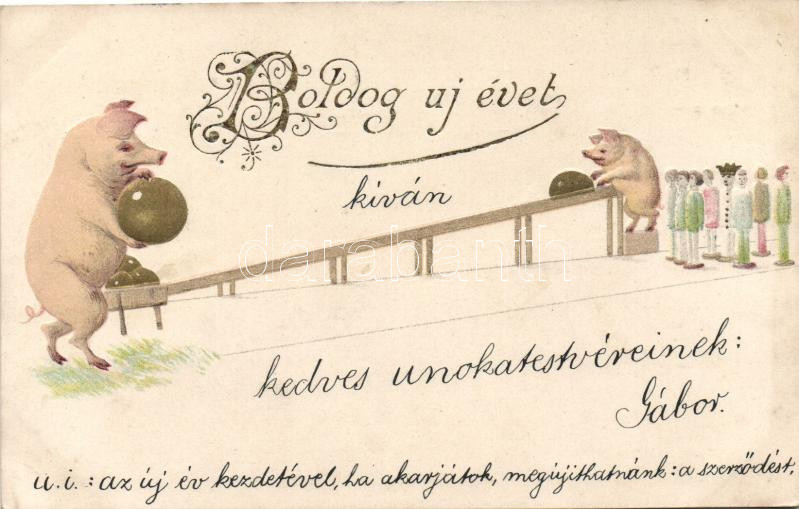 Boldog uj évet
kíván
darabanth
kedves unokatestvéreinek:
Gábor.
u.i.: az új év kezdetével, ha akarjátok, megújithatnánk: a szerződést.